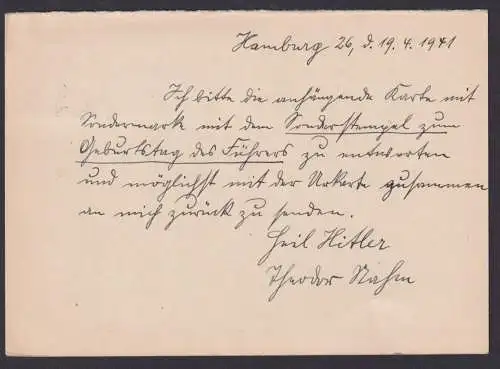 Hamburg 26, d. 19.4.1941
Ich bitte die anhängende Karte mit
Sondermark mit dem Sonderstempel zum
Geburtstag des Führers zu entwerten
und möglichst mit der Urkarte zusammen
an mich zurück zu senden.
Heil Hitler
Theodor